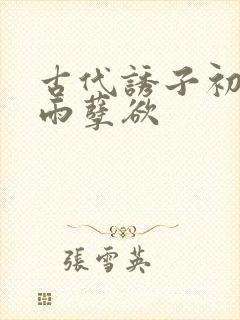 古代誘子初
雨孽欲
張雪英